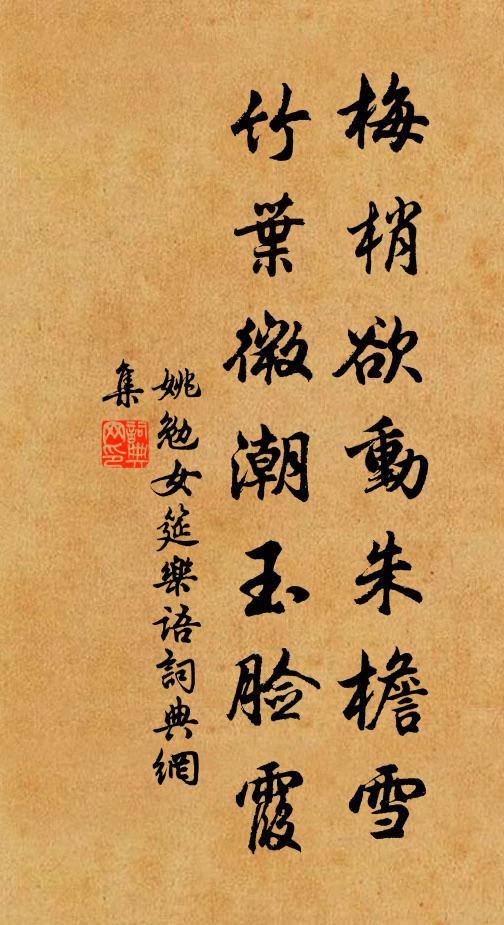 梅梢欲動朱檐雪
竹葉微潮玉臉霞
姚勉女筵樂語詞典網
集
詞典
网印